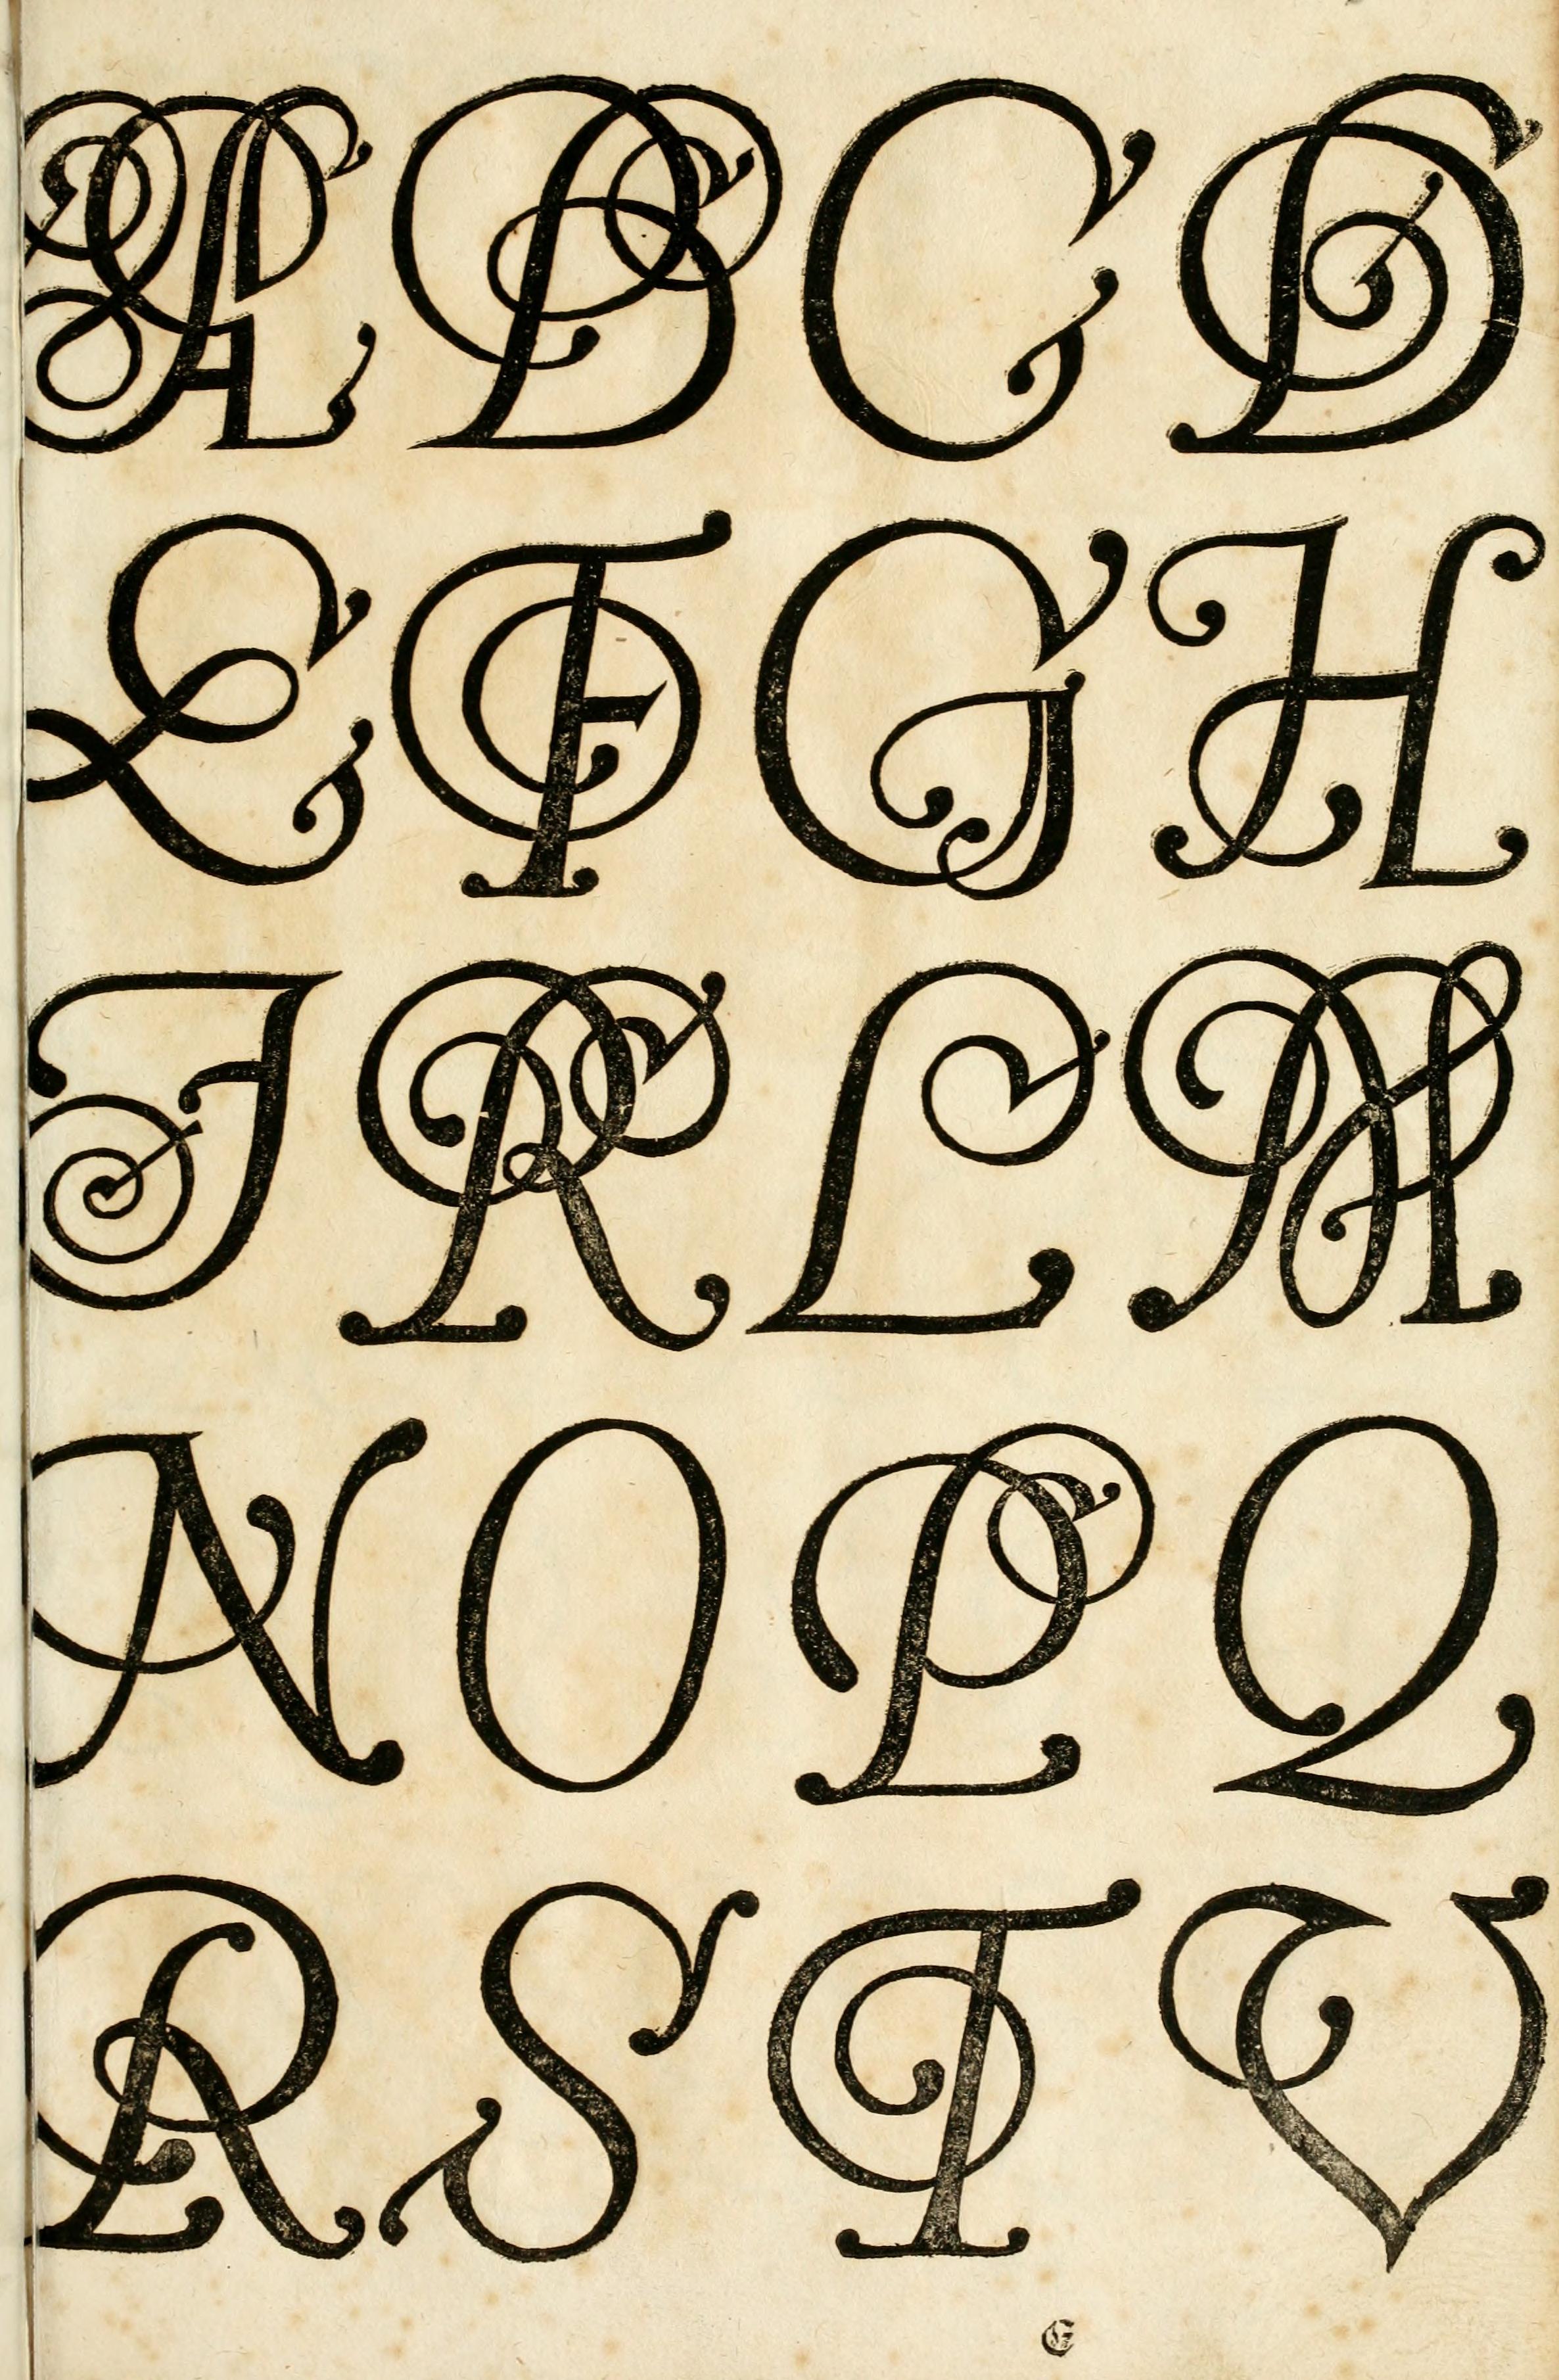 A B C D
E F G H
I K L M
N O P Q
R S T V
E